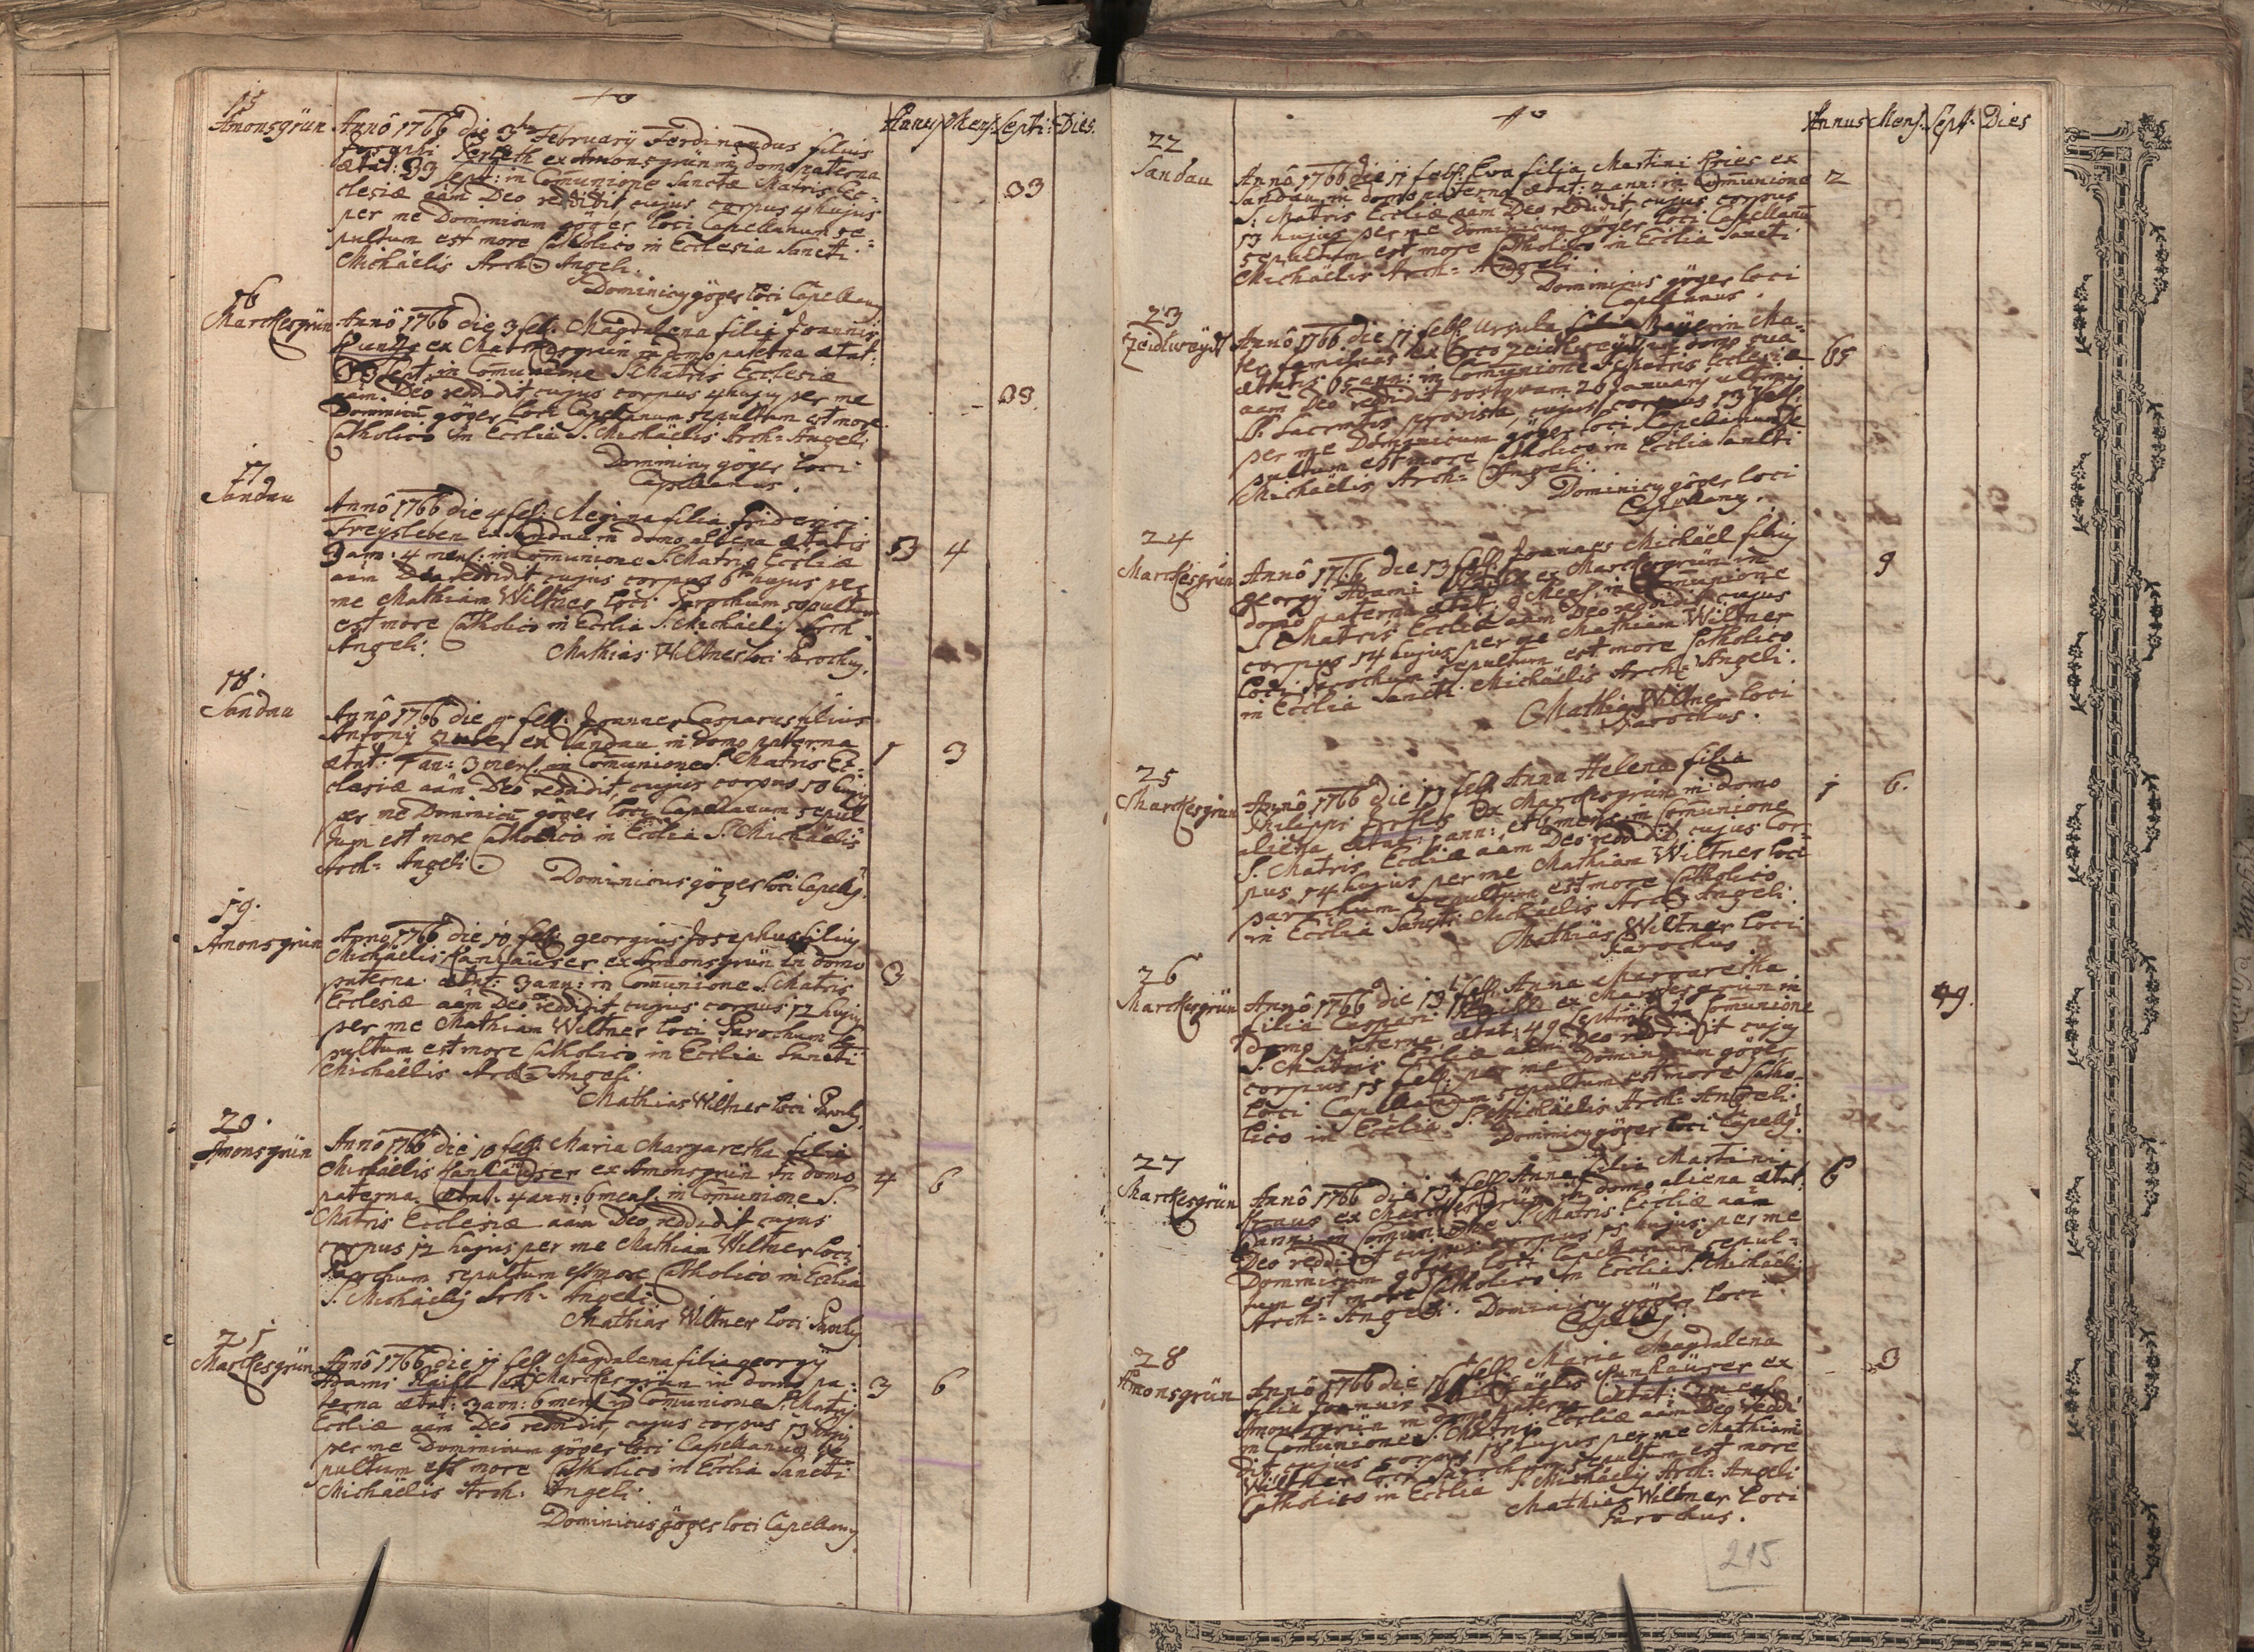 Annus Mens: Septi: Dies.
15
Amonsgrün
Annô 1766 die 3tia Februarÿ Ferdinandus filius
Josephi ex Amonsgrün in domo paterna
ætat: 33 sept: in Comunione Sanctæ Matris Ec=
clesiæ aam Deo reddidit, cujus corpus 4 hujus
per me Dominicum göger loci Capellanum se=
pultum est more Catholico in Ecclesia Sancti
Michäelis Arch= Angeli.
33
Dominicy göger loci Capellany
16
Marckesgrün
Annô 1766 die 3 feb: Magdalena filia Joannis
ex Marckesgrün in domo paterna ætat:
33 sept: in Comunione S. Matris Ecclesiæ
aam Deo reddidit, cujus corpus 4 hujus per me
Dominicū göger loci Capellanum sepultum est more
Catholico in Ecclia S. Michäelis Arch= Angeli
33.
Dominicy göger loci
Capellanus.
17
Sandau
Annô 1766 die 4 feb: Regina filia friderici
Freysleben ex Sandau in domo aliena ætatis
ann: 4 mens: in Comunione S. Matris Eccliæ
aam Deo reddidit, cujus corpus 6ta hujus per
me Mathiam Wiltner loci Parochum sepultum
est more Catholico in Ecclia S. Michäelis Arch
Angeli.
53 4
Mathias Wiltner loci Parochy.
18
Sandau
Annô 1766 die 9 feb: Joannes Casparus filius
Antonÿ ex Sandau in domo paterna
ætat: 1 an: 3 mens. in Comunione S. Matris Ec=
clesiæ aam Deo reddidit, cujus corpus 10 hujy
per me Dominicū göger loci Capellanum sepul
tum est more Catholico in Ecclia S. Michäelis
Arch= Angeli.
1 3
Dominicus göger loci Capelly.
19.
Amonsgrün
Anno 1766 die 10 feb: georgius Josephus filiy
Michäelis Hankäuser ex Amonsgrün in domo
paterna ætat: 3 ann: in Comunione S. Matris
Ecclesiæ aam Deo reddidit, cujus corpus 12 hujy
per me Mathiam Wiltner loci Parochum se
pultum est more Catholico in Ecclia Sancti
Michäelis Arch= Angeli.
3
Mathias Wiltner loci Parochy.
20.
Amonsgrün
Annô 1766 die 10 feb: Maria Margaretha filia
Michäelis Hankäuser ex Amonsgrün in domo
paterna ætat: 4 ann: 6 mens. in Comunione S.
Matris Ecclesiæ aam Deo reddidit cujus
corpus 12 hujus per me Mathiam Wiltner loci
Parochum sepultum est more Catholico in Ecclia
S. Michäelis Arch= Angeli.
4 6
Mathias Wiltner loci Parochy.
21
Marckesgrün
Annô 1766 die 11 feb: Magdalena filia georgÿ
Adami ex Marckesgrün in domo pa=
terna ætat: 3 ann: 6 mens in Comunione S. Matris
Eccliæ aam Deo reddidit, cujus corpus 13 hujy
per me Dominicum göger loci Capellanum se
pultum est more Catholico in Ecclia Sancti
Michäelis Arch: Angeli.
3 6
Dominicus göger loci Capellany
Annus Mens: Sept: Dies
22
Sandau
Annô 1766 die 11 feb: Eva filia Martini Kries ex
Sandau in domo paterna ætat: 2 ann: in Comunione
S. Matris Eccliæ aam Deo reddidit, cujus corpus
13 hujus per me Dominicum göger loci Capellanū
sepultum est more Catholico in Ecclia Sancti
Michäelis Arch= Angeli
2
Dominicus göger loci
Capellanus.
23
Zeidlweÿdt
Annô 1766 die 11 feb: Ursula Baÿerin Ma=
ter familias ex loco Zeidlweÿdt in domo sua
ætatis 65 ann: in Comunione S. Matris Ecclesiæ
aam Deo reddidit postquam 26 januarÿ ultimis
S. Sacrmtis provisa, cujus corpus 13 feb:
per me Dominicum göger loci Capellanum se
pultum est more Catholico in Ecclia Sancti
Michäelis Arch= Angeli.
65
Dominicy göger loci
Capellany.
24
Marckesgrün
Annô 1766 die 13 feb: Joannes Michäel filiy
georgÿ Adami ex Marckesgrün in
domo paterna ætat: 9 Mens. in Comunione
S. Matris Eccliæ aam Deo reddidit cujus
corpus 14 hujus per me Mathiam Wiltner
loci Parochum sepultum est more Catholico
in Ecclia Sancti Michäelis Arch= Angeli.
9
Mathias Wiltner loci
Parochus.
25
Marckesgrün
Annô 1766 die 13 feb: Anna Helena filia
Philippi ex Marckesgrün in domo
aliena ætat: 1 ann: et 6 mens: in Comunione
S. Matris Eccliæ aam Deo reddidit cujus Cor=
pus 14 hujus per me Mathiam Wiltner loci
parochum sepultum est more Catholico
in Ecclia Sancti Michäelis Arch= Angeli.
1 6.
Mathias Wiltner loci
Parochus.
26
Marckesgrün
Annô 1766 die 13 feb: Anna Margaretha
filia Caspari ex Marckesgrün in
domo paterna ætat: 49 septim: in Comunione
S. Matris Eccliæ aam Deo reddidit cujy
corpus 15 feb: per me Dominicum göger
loci Capellanum sepultum est more Catho=
lico in Ecclia S. Michäelis Arch= Angeli.
49.
Dominicy göger loci Capelly.
27
Marckesgrün
Annô 1766 die 13 feb: Anna filia Martini
Kraus ex Marckesgrün in domo aliena ætat:
6 ann: in Comunione S. Matris Eccliæ aam
Deo reddidit cujus corpus 15 hujus per me
Dominicum göger loci Capellanum sepul=
tum est more Catholico in Ecclia S. Michäelis
Arch= Angeli.
6
Dominicy göger loci
Capelly.
28
Amonsgrün
Annô 1766 die 16 feb: Maria Magdalena
filia Joannis Michäelis Hankäuser ex
Amonsgrün in domo paterna ætat: 3 mens.
in Comunione S. Matris Eccliæ aam Deo reddi
dit cujus corpus 18 hujus per me Mathiam
Wiltner loci Parochum sepultum est more
Catholico in Ecclia S. Michäelis Arch= Angeli
3
Mathias Wiltner loci
Parochus.
215